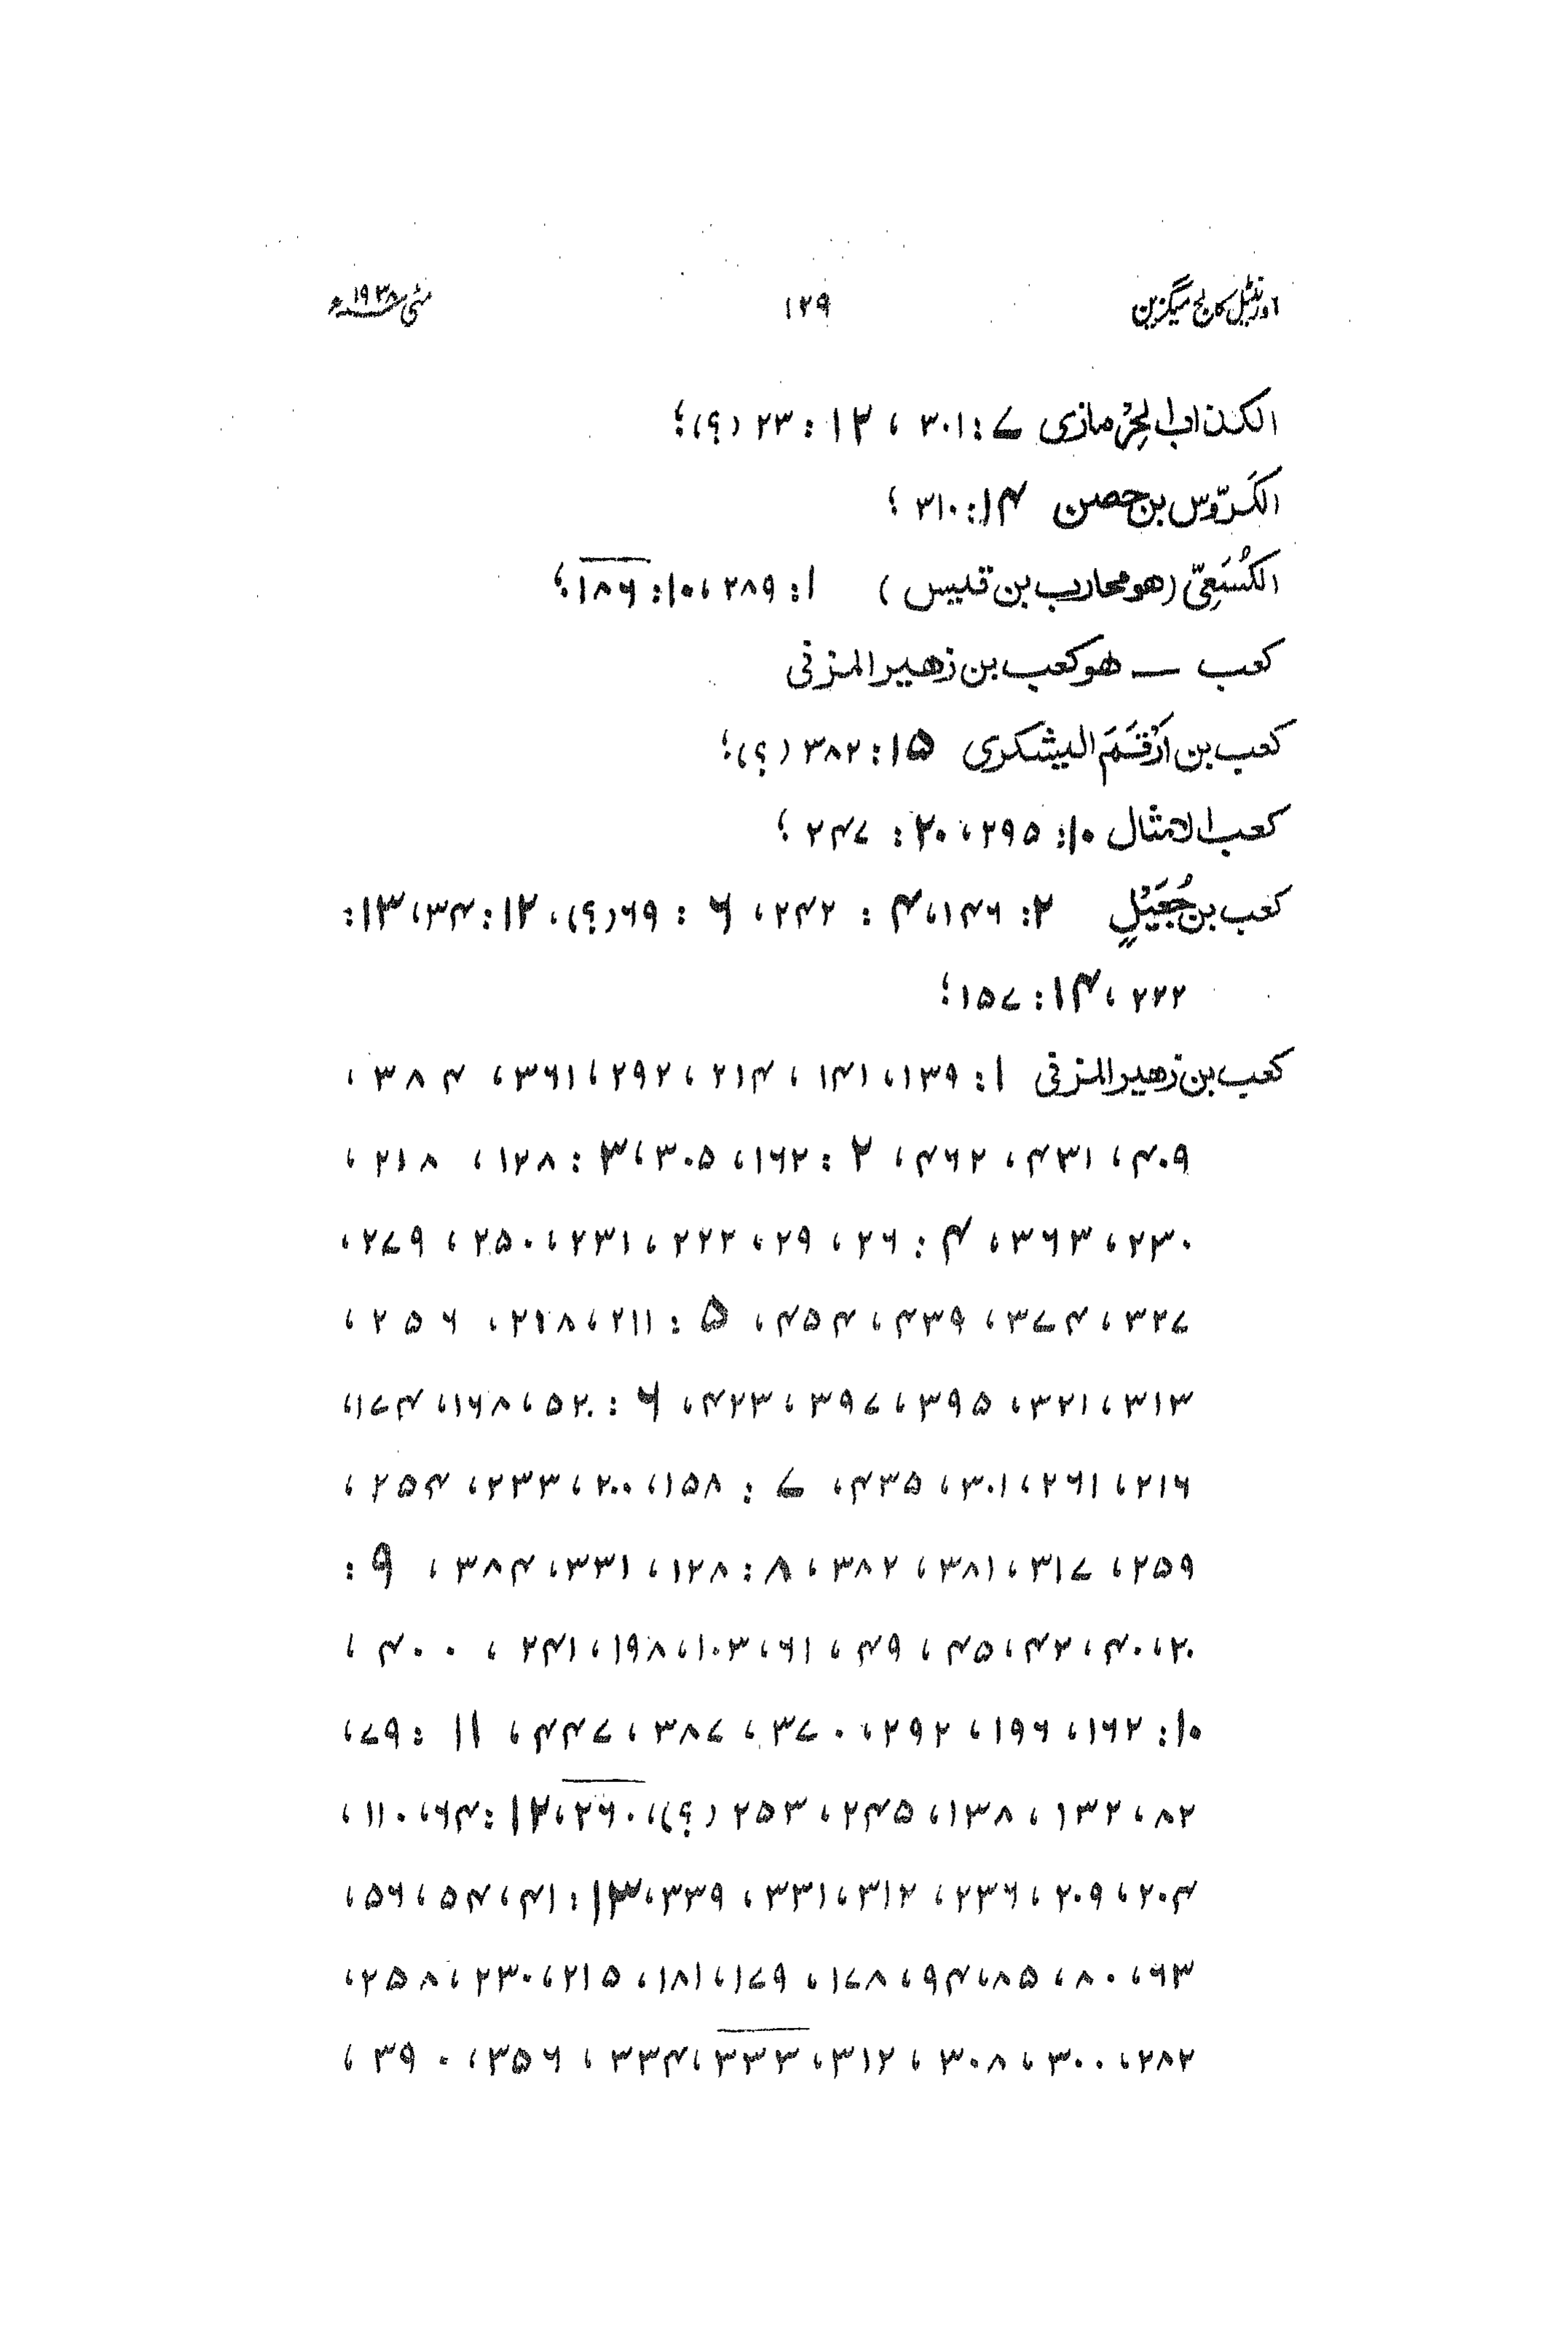 اورنٹیل کالج میگزین ۱۲۹ مئی ۱۹۳۸ء
الکذاب الحِرْمازی ۷: ۳۰۱، ۱۲: ۲۳ (؟)؛
الکَرَوّس بن حصن ۱۴: ۳۱۰؛
الکُسَعِیّ (هو محارب بن قیس) ۱: ۲۸۹، ۱۰: ۱۸۶؛
کعب — هو کعب بن زهیر المزنی
کعب بن اَرْقَمَ الیشکری ۱۵: ۳۸۲ (؟)؛
کعب الامثال ۱۰: ۲۹۵، ۲۰: ۲۴۷؛
کعب بن جُعَیْلٍ ۲: ۱۴۶، ۴: ۲۴۲، ۶: ۶۹ (؟)، ۱۲: ۳۴، ۱۳:
۲۲۲، ۱۴: ۱۵۷؛
کعب بن زهیر المزنی ۱: ۱۳۹، ۱۴۱، ۲۱۴، ۲۹۲، ۳۶۱، ۳۸۴،
۴۰۹، ۴۳۱، ۴۶۲، ۲: ۱۶۲، ۳۰۵، ۳: ۱۲۸، ۲۱۸،
۲۳۰، ۳۶۳، ۴: ۲۶، ۲۹، ۲۲۲، ۲۳۱، ۲۵۰، ۲۷۹،
۳۲۷، ۳۷۴، ۴۳۹، ۴۵۴، ۵: ۲۱۱، ۲۱۸، ۲۵۶،
۳۱۳، ۳۲۱، ۳۹۵، ۳۹۷، ۴۲۳، ۶: ۵۲، ۱۶۸، ۱۷۴،
۲۱۶، ۲۶۱، ۳۰۱، ۴۳۵، ۷: ۱۵۸، ۲۰۰، ۲۳۳، ۲۵۴،
۲۵۹، ۳۱۷، ۳۸۱، ۳۸۲، ۸: ۱۲۸، ۳۳۱، ۳۸۴، ۹:
۲۰، ۴۰، ۴۲، ۴۵، ۴۹، ۶۱، ۱۰۳، ۱۹۸، ۲۴۱، ۴۰۰،
۱۰: ۱۶۲، ۱۹۶، ۲۹۲، ۳۷۰، ۳۸۷، ۴۴۷، ۱۱: ۷۹،
۸۲، ۱۳۲، ۱۳۸، ۲۴۵، ۲۵۳ (؟)، ۲۶۰، ۱۲: ۶۴، ۱۱۰،
۲۰۴، ۲۰۹، ۲۳۶، ۳۱۲، ۳۳۱، ۳۳۹، ۱۳: ۴۱، ۵۴، ۵۶،
۶۳، ۸۰، ۸۵، ۹۴، ۱۷۸، ۱۷۹، ۱۸۱، ۲۱۵، ۲۳۰، ۲۵۸،
۲۸۲، ۳۰۰، ۳۰۸، ۳۱۲، ۳۳۳، ۳۳۴، ۳۵۶، ۳۹۰،